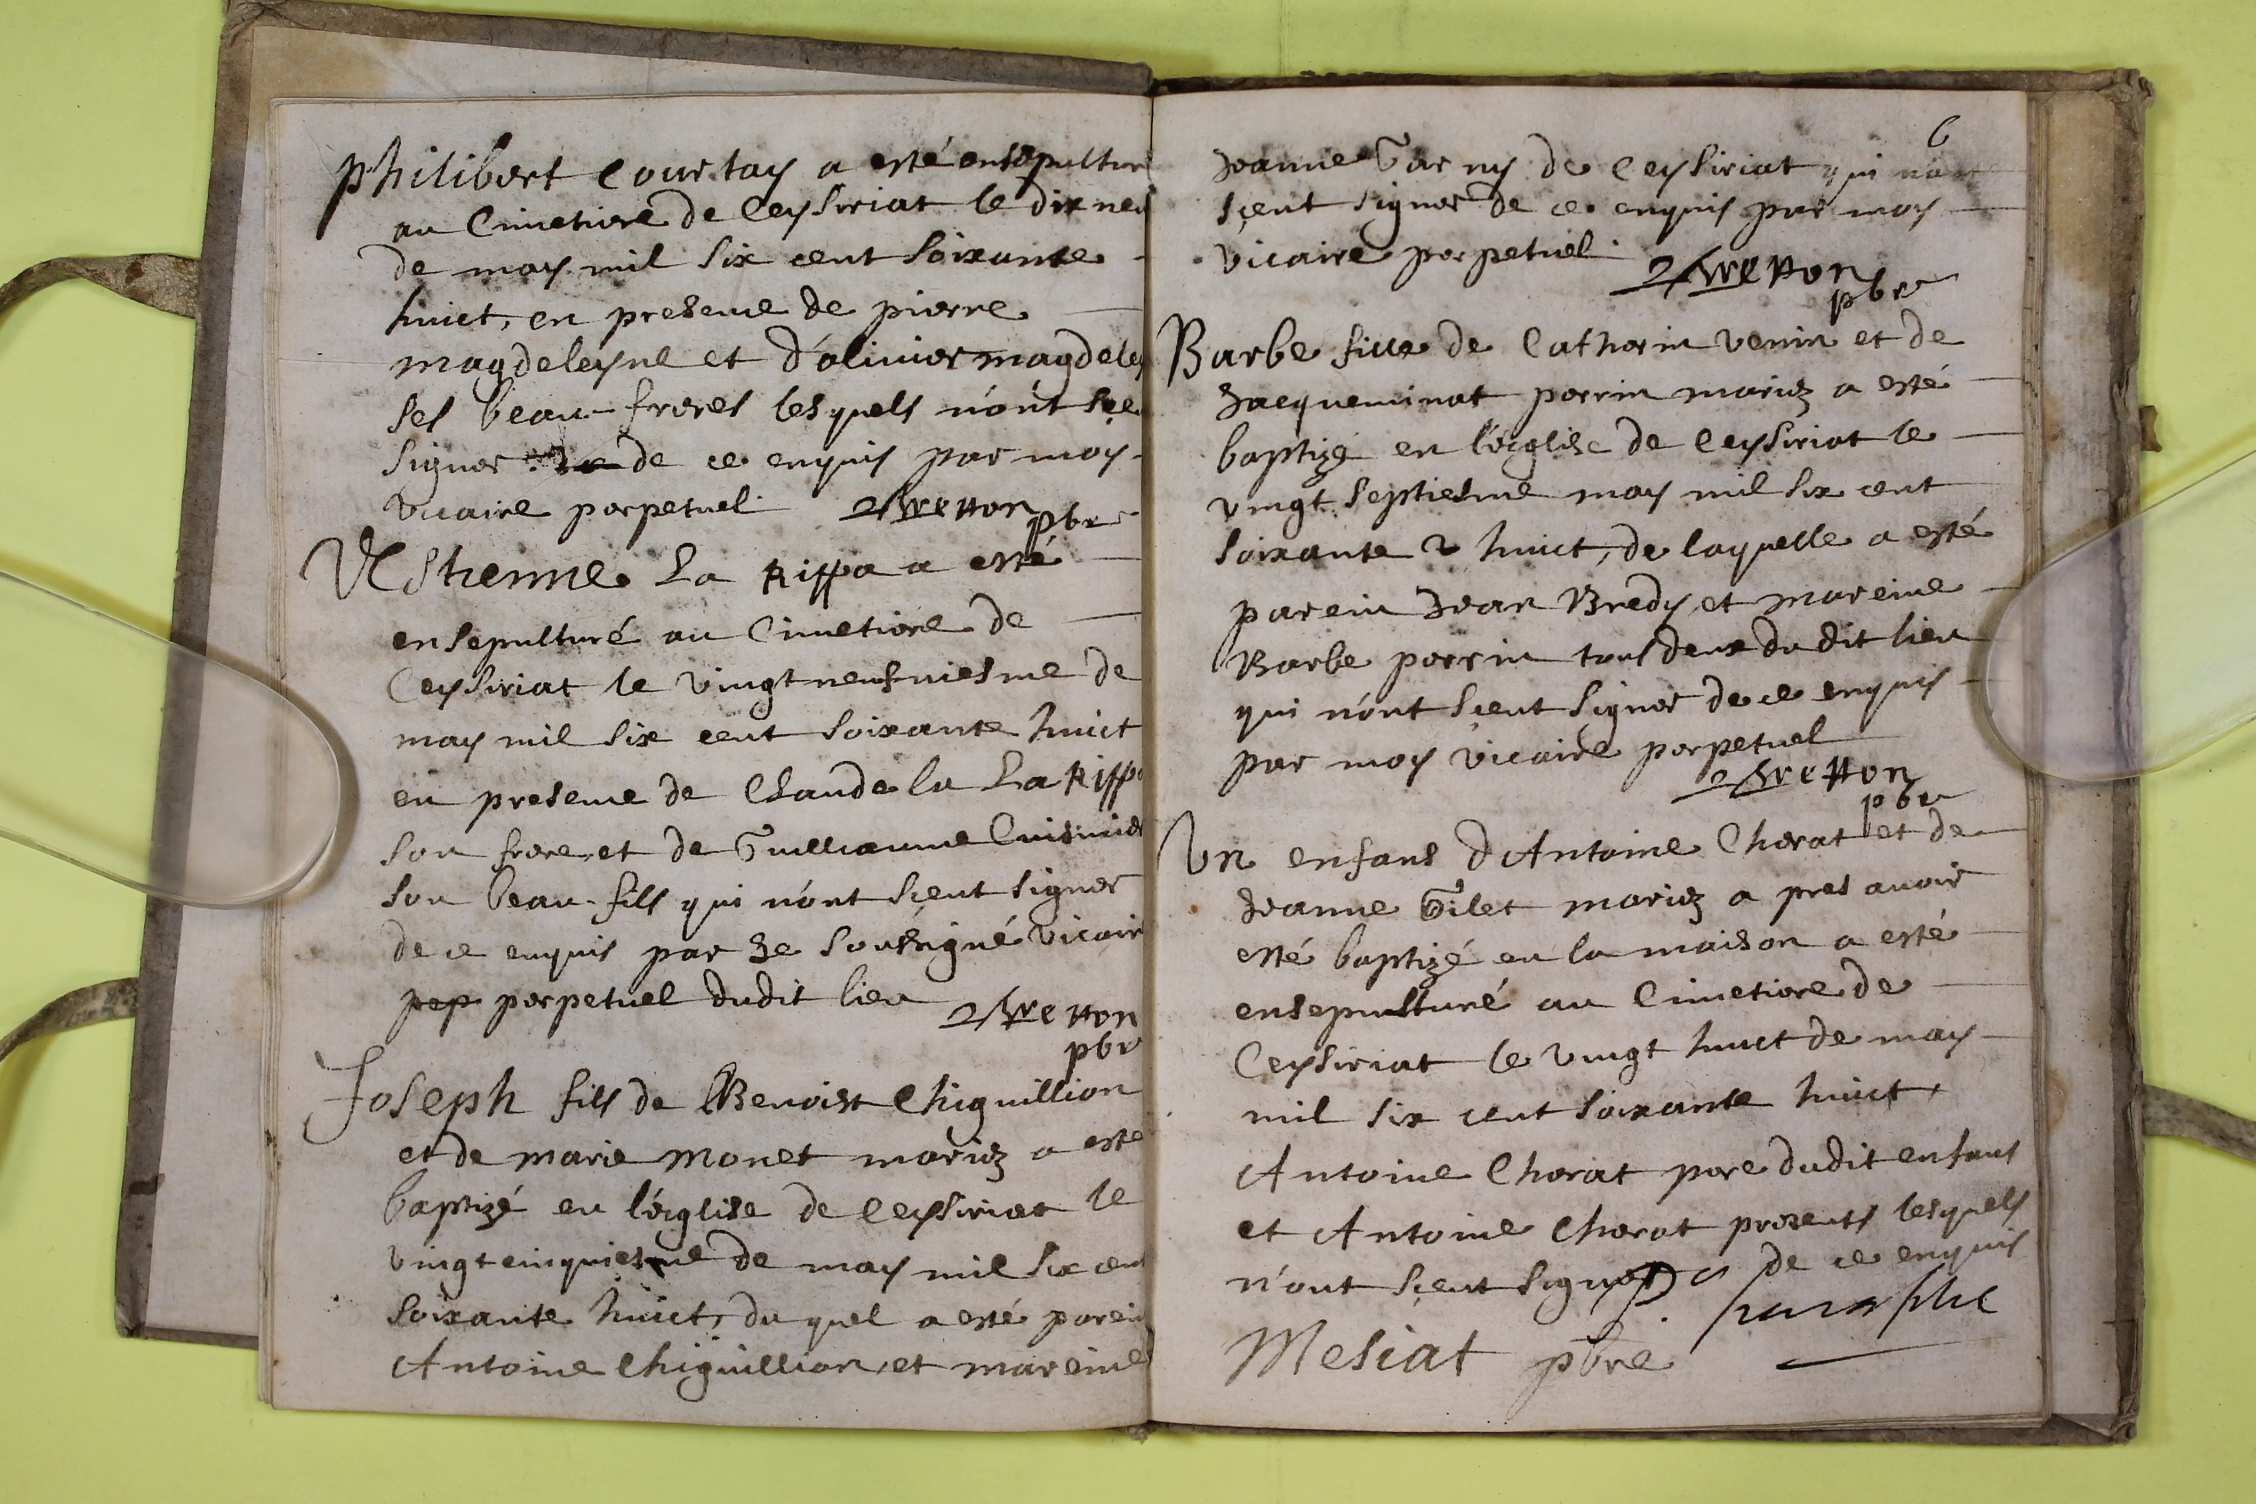 philibert Courtay a esté ensepulturé
au Cimetiere de Ceysiriat le dix neu
de may mil six cent soixante
huict, en presence de pierre
magdeleyne et d'olinier magdeley
ses beau-freres lesquels n'ont sçeu
signer de ce enquis par moy
vicaire perpetuel
pbre
Estienne La Rippa a esté
ensepulturé au Cimetiere de
Ceysiriat le vingt neufviesme de
may mil six cent soixante huict
en presence de Claude la La Rippa
son frere et de Guilliaume Cuisinier
son beau-fils qui n'ont sçeut signer
de ce enquis par Je soubsigné vicaire
pep perpetuel dudit lieu
pbr
Joseph fils de Benoist Chiguillion
et de marie Monet mariez a esté
baptizé en l'eiglise de Ceysiriat le
vingt cinquiesme de may mil six cent
soixante huict, du quel a esté parein
Antoine Chiguillion, et mareine
6
Jeanne Garny de Ceysiriat qui n'ont
sçeut signer de ce enquis par moy
vicaire perpetuel
pbre
Barbe fille de Catherin venin et de
Jacqueminat perrin mariez a esté
baptizé en l'eiglise de Ceysiriat le
vingt septiesme may mil six cent
soixante & huict, de laquelle a esté
parein Jean Bredy, et mareine
Barbe perrin tous deux dudit lieu
qui n'ont sçeut signer de ce enquis
par moy vicaire perpetuel
pbre
Un enfans d'Antoine Cherat et de
Jeanne Gilet mariez a pres avoir
esté baptizé en la maison a esté
ensepulturé au Cimetiere de
Ceysiriat le vingt huict de may
mil six cent soixante huict,
Antoine Cherat pere dudit enfant
et Antoine Cherat presents lesquels
n'ont sçeut signer de ce enquis
Mesiat pbre paraphe